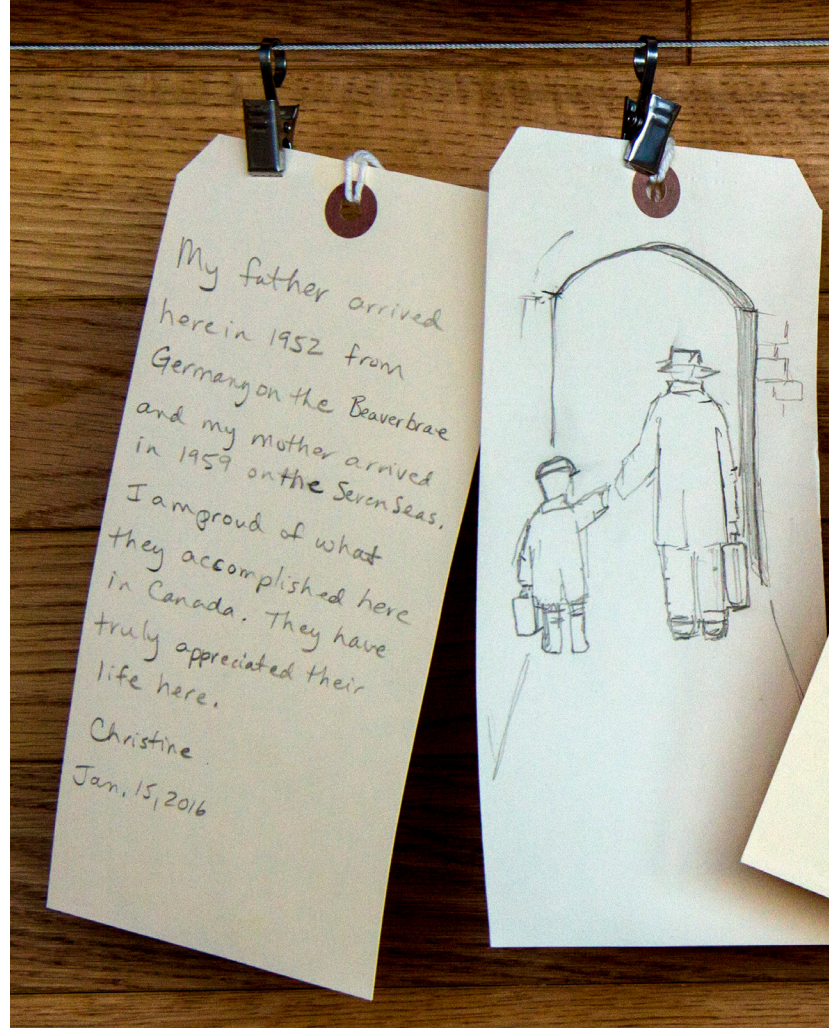 My father arrived
here in 1952 from
Germany on the Beaverbrae
and my mother arrived
in 1959 on the Seven Seas.
I am proud of what
they accomplished here
in Canada. They have
truly appreciated their
life here.
Christine
Jan. 15, 2016